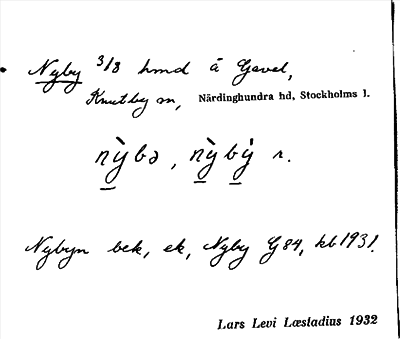 Nyby 3/8 hmd å Gavel,
Knutby sn, Närdinghundra hd, Stockholms l.
nỳbə, nỳbý r.
Nybyn bek, ek, Nyby G84, kb 1931.
Lars Levi Læstadius 1932